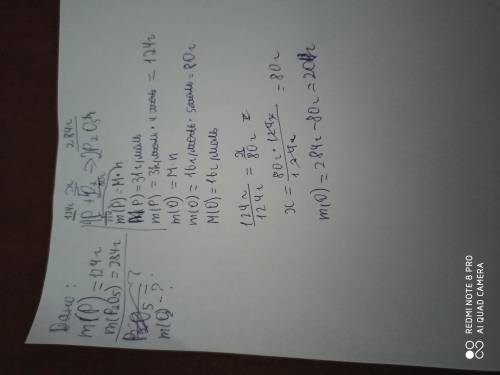 Дано:
m(P) = 124г
m(P₂O₅) = 284г
m(O) - ?
124г x 284г
4P + O₂ → 2P₂O5
m(P) = M·n
M(P) = 31г/моль
m(P) = 31г/моль · 4 моль = 124г
m(O) = M n
m(O) = 16г/моль · 5моль = 80г
M(O) = 16г/моль
124г/124г = x/80г
x = 80г · 124г/124г = 80г
m(O) = 284г - 80г = 204г
REDMI NOTE 8 PRO
AI QUAD CAMERA